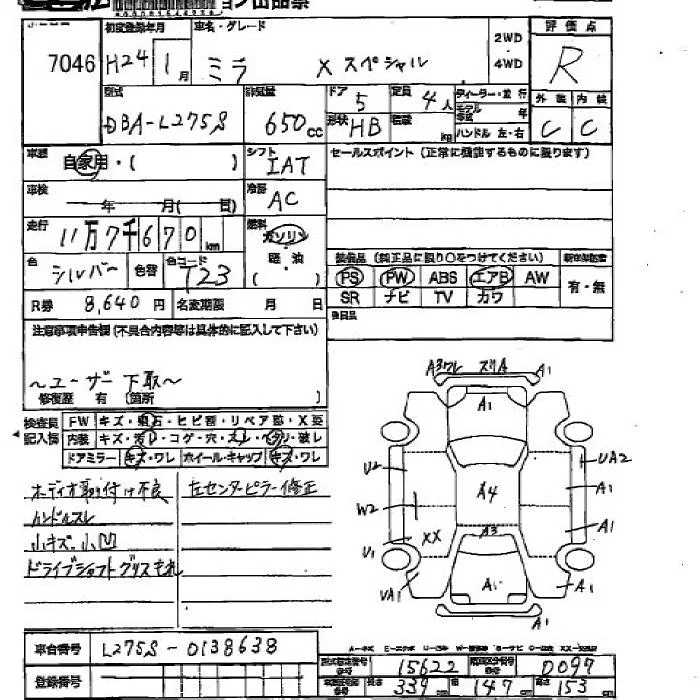 出品票
7046 初度登録年月 車名・グレード 2WD・4WD 評価点
H24 1月 ミラ X スペシャル R
型式 排気量 ドア 定員 ディーラー・並行 外装 内装
DBA-L275S 650cc 5 4人 モデル年式 年 C C
形状 HB 積載 kg ハンドル 左・右
車歴 自家用・( ) シフト IAT セールスポイント(正常に機能するものに限ります)
車検 年 月( 日) 冷房 AC
走行 11万7千670km 燃料 ガソリン 軽油 ( )
色 シルバー 色替 色コード T23
装備品(純正品に限り○をつけてください) 新車保証書
PS PW ABS エアB AW 有・無
SR ナビ TV カワ
R券 8,640円 名変期限 月 日
注意事項申告欄(不具合内容等は具体的に記入して下さい)
~ユーザー下取~
修復歴 有 (箇所 )
検査員記入欄 FW キズ・飛石・ヒビ割・リペア跡・X要
内装 キズ・汚レ・コゲ・穴・スレ・ヘタリ・破レ
ドアミラー キズ・ワレ ホイール・キャップ キズ・ワレ
ボディオ取り付け不良 左センターピラー修正
ハンドルスレ
小キズ、小凹
ドライブシャフトグリスモレ
A3ワレ スリA A1
A1
U2 UA2
A1
W2 A4
A1
U1 XX A3
UA1 A1 A1
A1
車台番号 L275S-0138638
登録番号
型式指定番号 15622 類別区分番号 0097
長さ 339 幅 147 高さ 153